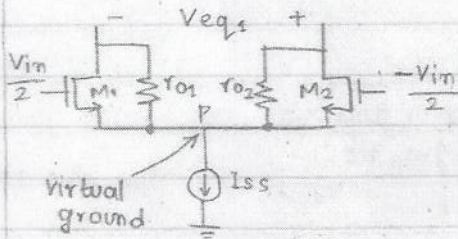 - Veq1 +
Vin/2 M1 ro1 ro2 M2 -Vin/2
P
virtual
ground
Iss